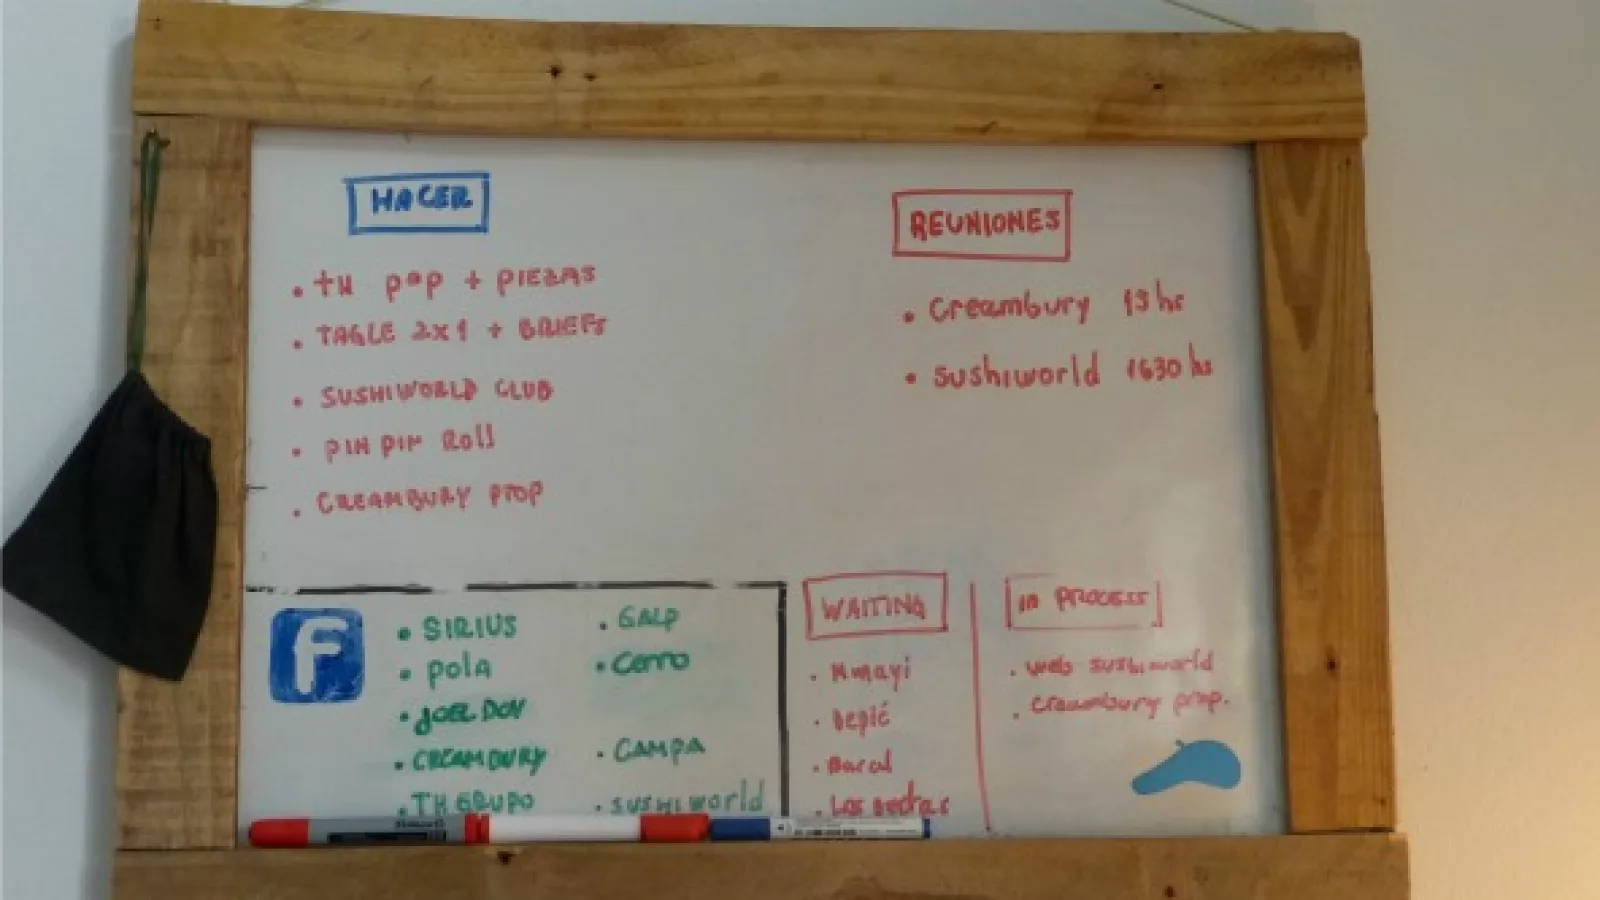 HACER
• TH POP + PIEZAS
• TAGLE 2x1 + BRIEFS
• SUSHIWORLD CLUB
• PIN PIN Roll
• CREAMBURY PROP
REUNIONES
• Creambury 13 hs
• Sushiworld 1630 hs
F
• SIRIUS
• POLA
• JOEL DOV
• CREAMBURY
• TH GRUPO
• GALP
• Cerro
• CAMPA
• SUSHIworld
WAITING
•
•
•
• Los
in PROCESS
• web sushiworld
• Creambury prop.